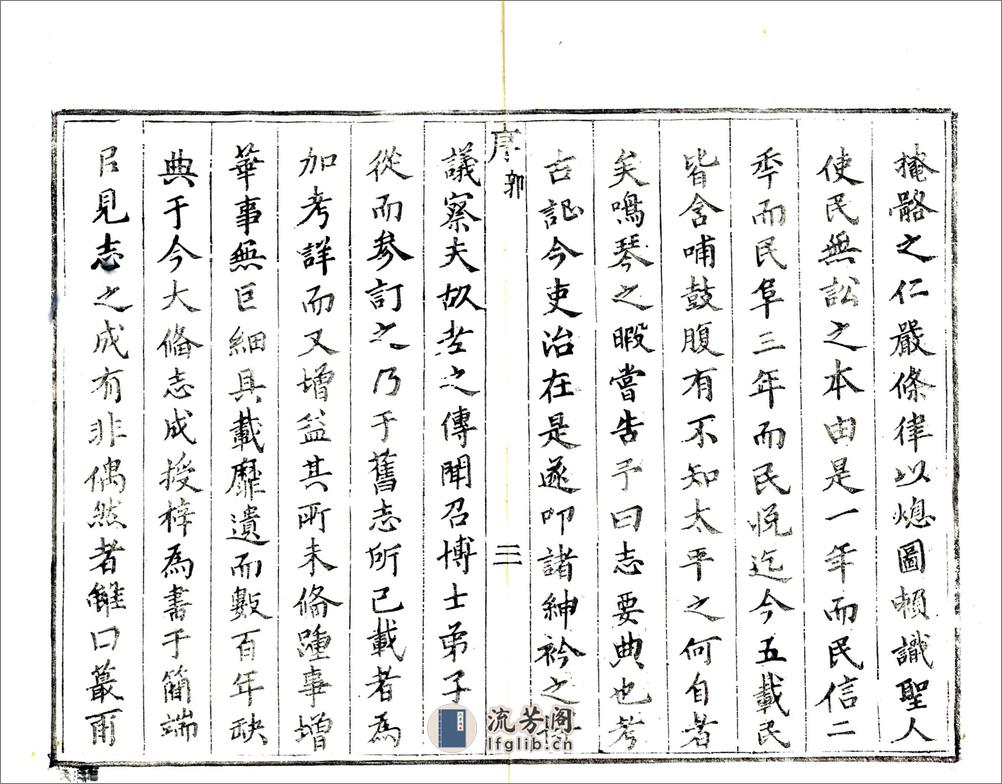 掩骼之仁嚴條律以熄圖賴識聖人
使民無訟之本由是一年而民信二
秊而民阜三年而民悦迄今五載民
皆含哺鼓腹有不知太平之何自者
矣鳴琴之暇嘗告予曰志要典也考
古記今吏治在是遂叩諸紳衿之
序 郭
三
議察夫故老之傳聞召博士弟子
從而參訂之乃于舊志所已載者為
加考詳而又增益其所未俻踵事增
華事無巨細具載靡遺而數百年缺
典于今大俻志成授梓為書于簡端
㠯見志之成有非偶然者雖曰蕞爾
流芳阁
lfglib.cn